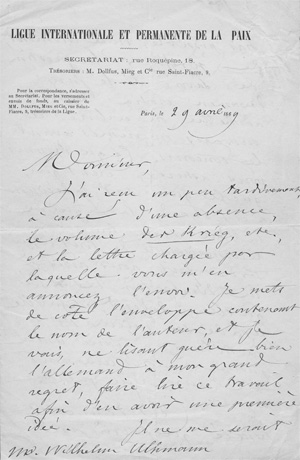 LIGUE INTERNATIONALE ET PERMANENTE DE LA PAIX
SECRÉTARIAT : rue Roquépine, 18.
TRÉSORIERS : M. Dollfus, Mieg et Cie rue Saint-Fiacre, 9.
Pour la correspondance, s'adresser
au Secrétariat. Pour les versements et
envois de fonds, au caissier de
MM. DOLLFUS, MIEG et Cie, rue Saint-
Fiacre, 9, trésoriers de la Ligue.
Paris, le 29 avril
Monsieur,
J'ai reçu un peu tardivement,
à cause d'une absence,
le volume der Krieg, etc.,
et la lettre chargée par
laquelle vous m'en
annoncez l'envoi. Je mets
de côté l'enveloppe contenant
le nom de l'auteur, et je
vais, ne lisant guère bien
l'allemand à mon grand
regret, faire lire ce travail
afin d'en avoir une première
idée. Il ne me serait
Wilhelm Uhlmann